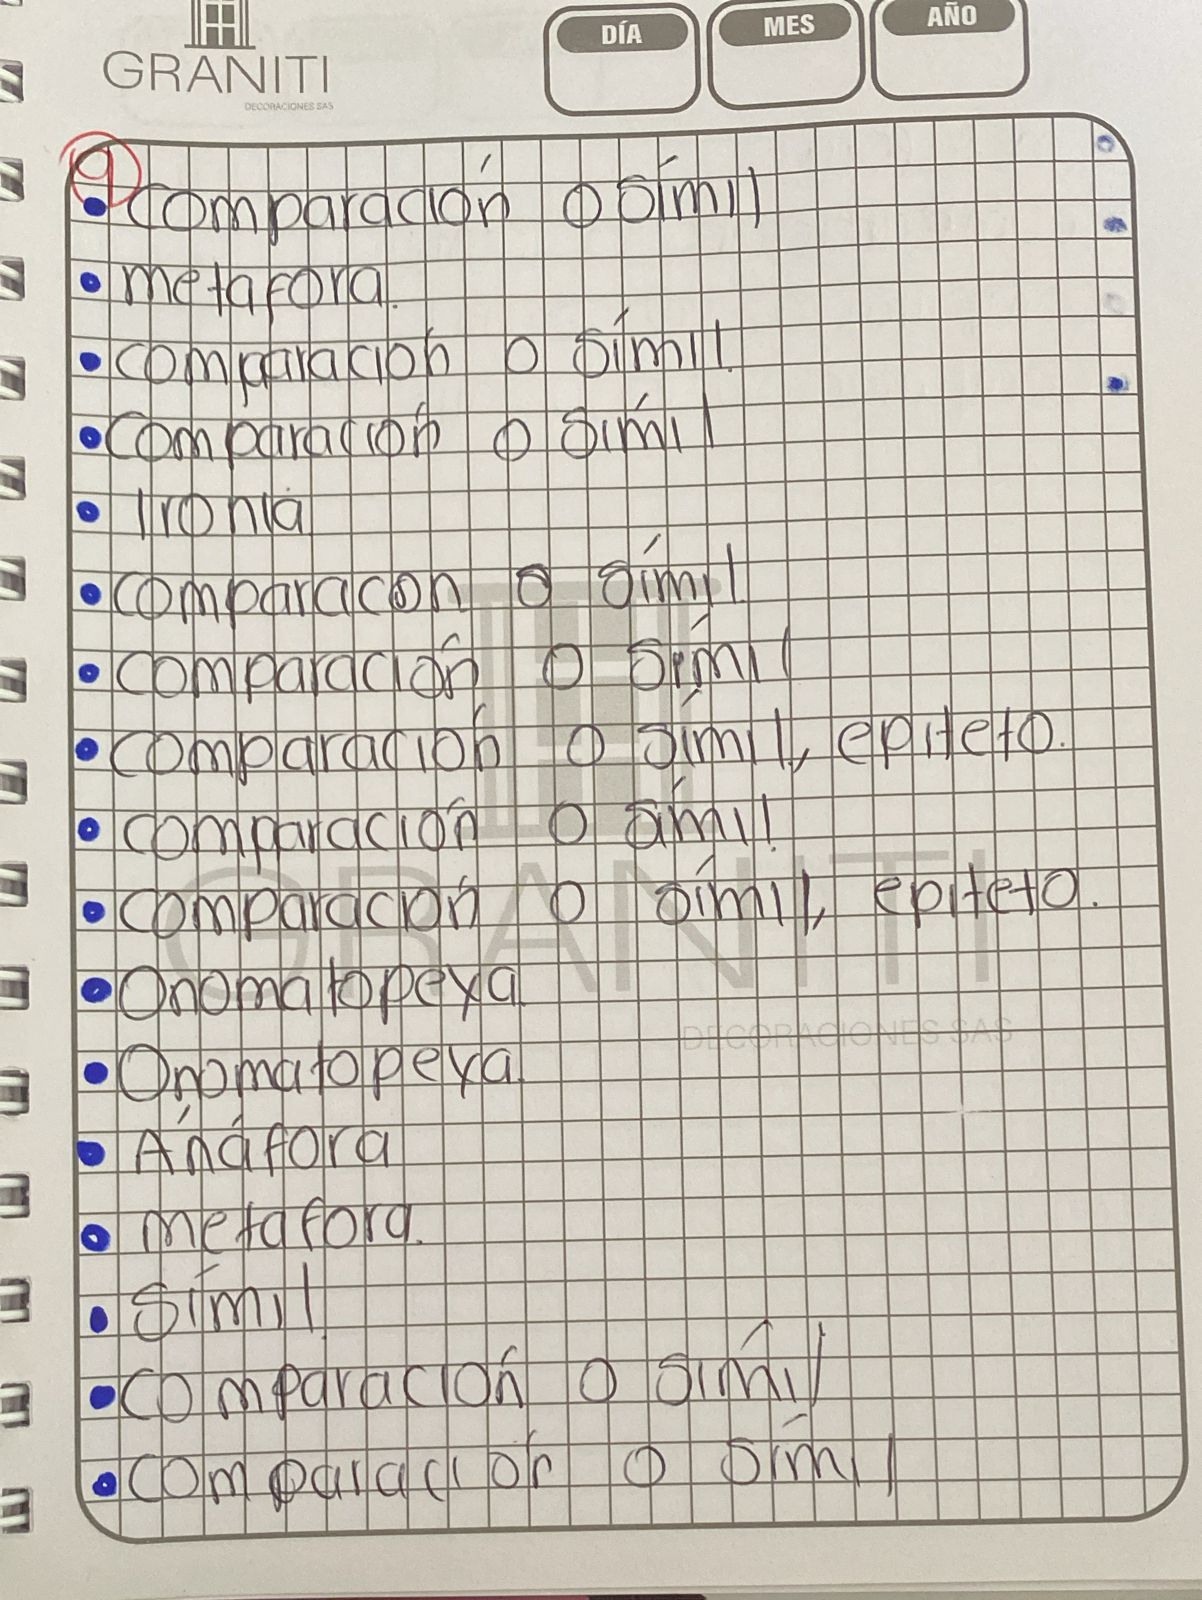 GRANITI
DECORACIONES SAS
DÍA
MES
AÑO
9
• comparación o símil
• metafora.
• comparación o símil.
• comparación o símil
• Ironia
• comparacon o símil.
• comparación o símil
• comparación o símil, epiteto.
• comparación o símil.
• comparación o símil, epiteto.
• Onomatopeya.
• Onomatopeya.
• Anáfora
• metafora.
• Símil.
• comparación o símil
• comparación o símil
GRANITI
DECORACIONES SAS